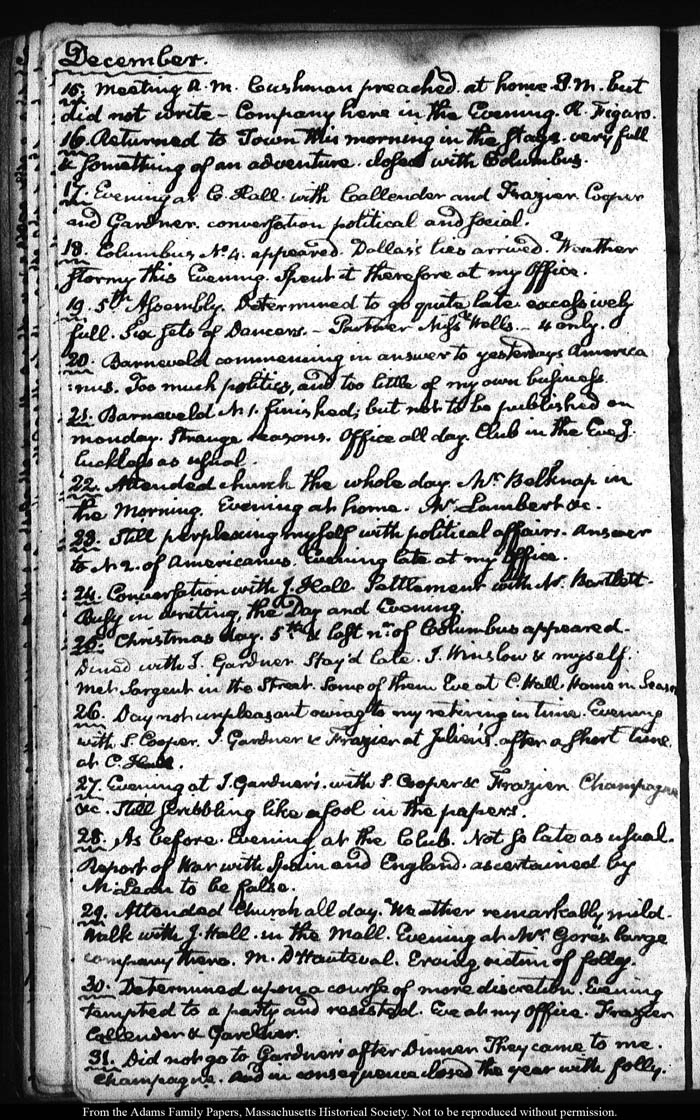 December.
15. Meeting A.M. Cushman preached. at home P.M. but
did not write - Company here in the Evening. R. Figaro.
16. Returned to Town this morning in the stage. very full
& something of an adventure. closed with Columbus.
17. Evening at C. Hall. with Callender and Frazier. Cooper
and Gardner. conversation political and social.
18. Columbus No. 4. appeared. Dallas's lies arrived. Weather
stormy this Evening. Spent it therefore at my Office.
19. 5th Assembly. Determined to go quite late. excessively
full. Six sets of Dancers. - Partner Miss Walls. - 4 only.
20. Barneveld commencing in answer to yesterdays America
:nus. Too much politics, and too little of my own business.
21. Barneveld N 1. finished; but not to be published on
monday. Strange reasons. Office all day. Club in the Eveg.
luckless as usual.
22. Attended church the whole day. Mr. Belknap in
the Morning. Evening at home. Mr. Lambert &c.
23. Still perplexing myself with political affairs. Answer
to N 2. of Americanus. Evening late at my Office.
24. Conversation with J. Hall. Settlement with Mr. Bartlett.
Busy in writing, the Day and Evening.
25. Christmas day. 5th & last no. of Columbus appeared.
Dined with J. Gardner. Stay'd late. J. Winslow & myself.
met Sargent in the Street. Some of them Eve at C. Hall. Home in Season
26. Day not unpleasant owing to my retiring in time. Evening
with S. Cooper. J. Gardner & Frazier at Julien's. after a short time
at C. Hall.
27. Evening at J. Gardner's. with S. Cooper & Frazier. Champagne
&c. Still scribbling like a fool in the papers.
28. As before. Evening at the Club. Not so late as usual.
Report of War with Spain and England. ascertained by
McLean to be false.
29. Attended Church all day. Weather remarkably mild.
Walk with J. Hall. in the Mall. Evening at Mrs. Gore's. large
company there. M. D'Hauteval. Erving, victim of folly.
30. Determined upon a course of more discretion. Evening
tempted to a party and resisted. Eve at my Office. Frazier
Callender & Gardner.
31. Did not go to Gardner's after Dinner. They came to me.
Champagne. And in consequence closed the year with folly.
From the Adams Family Papers, Massachusetts Historical Society. Not to be reproduced without permission.